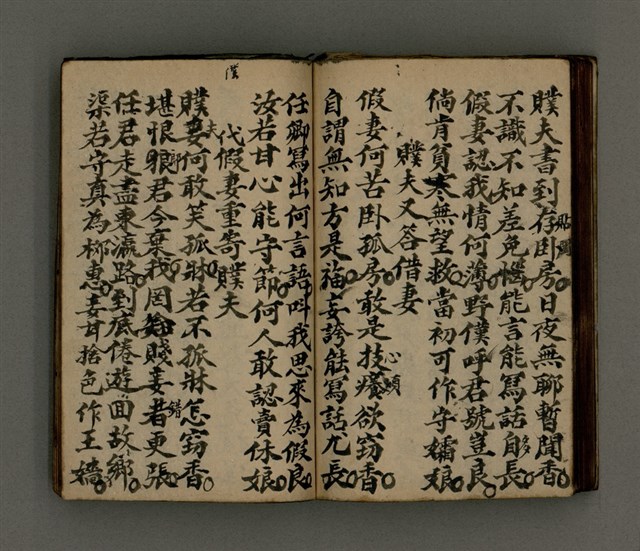 贌夫書到存臥房日夜無聊暫聞香
不識不知差免惱能言能寫話自長
假妻認我情何薄野僕呼君號豈良
倘肯貧寒無望救當初可作守孀娘
贌夫又答借妻
假妻何苦臥孤房敢是技癢欲窃香
心煩
自謂無知方是福妄誇能寫話尤長
任卿寫出何言語叫我思來為假良
汝若甘心能守節何人敢認賣休娘
代假妻重寄贌夫
贌夫何敢笑孤牀若不孤牀怎窃香
堪恨狠君今棄我罔飡賤妾者更張
錯
任君走盡東瀛路到底倦遊回故鄉
渠若守真為柳惠妾甘捨色作王嬙
僕